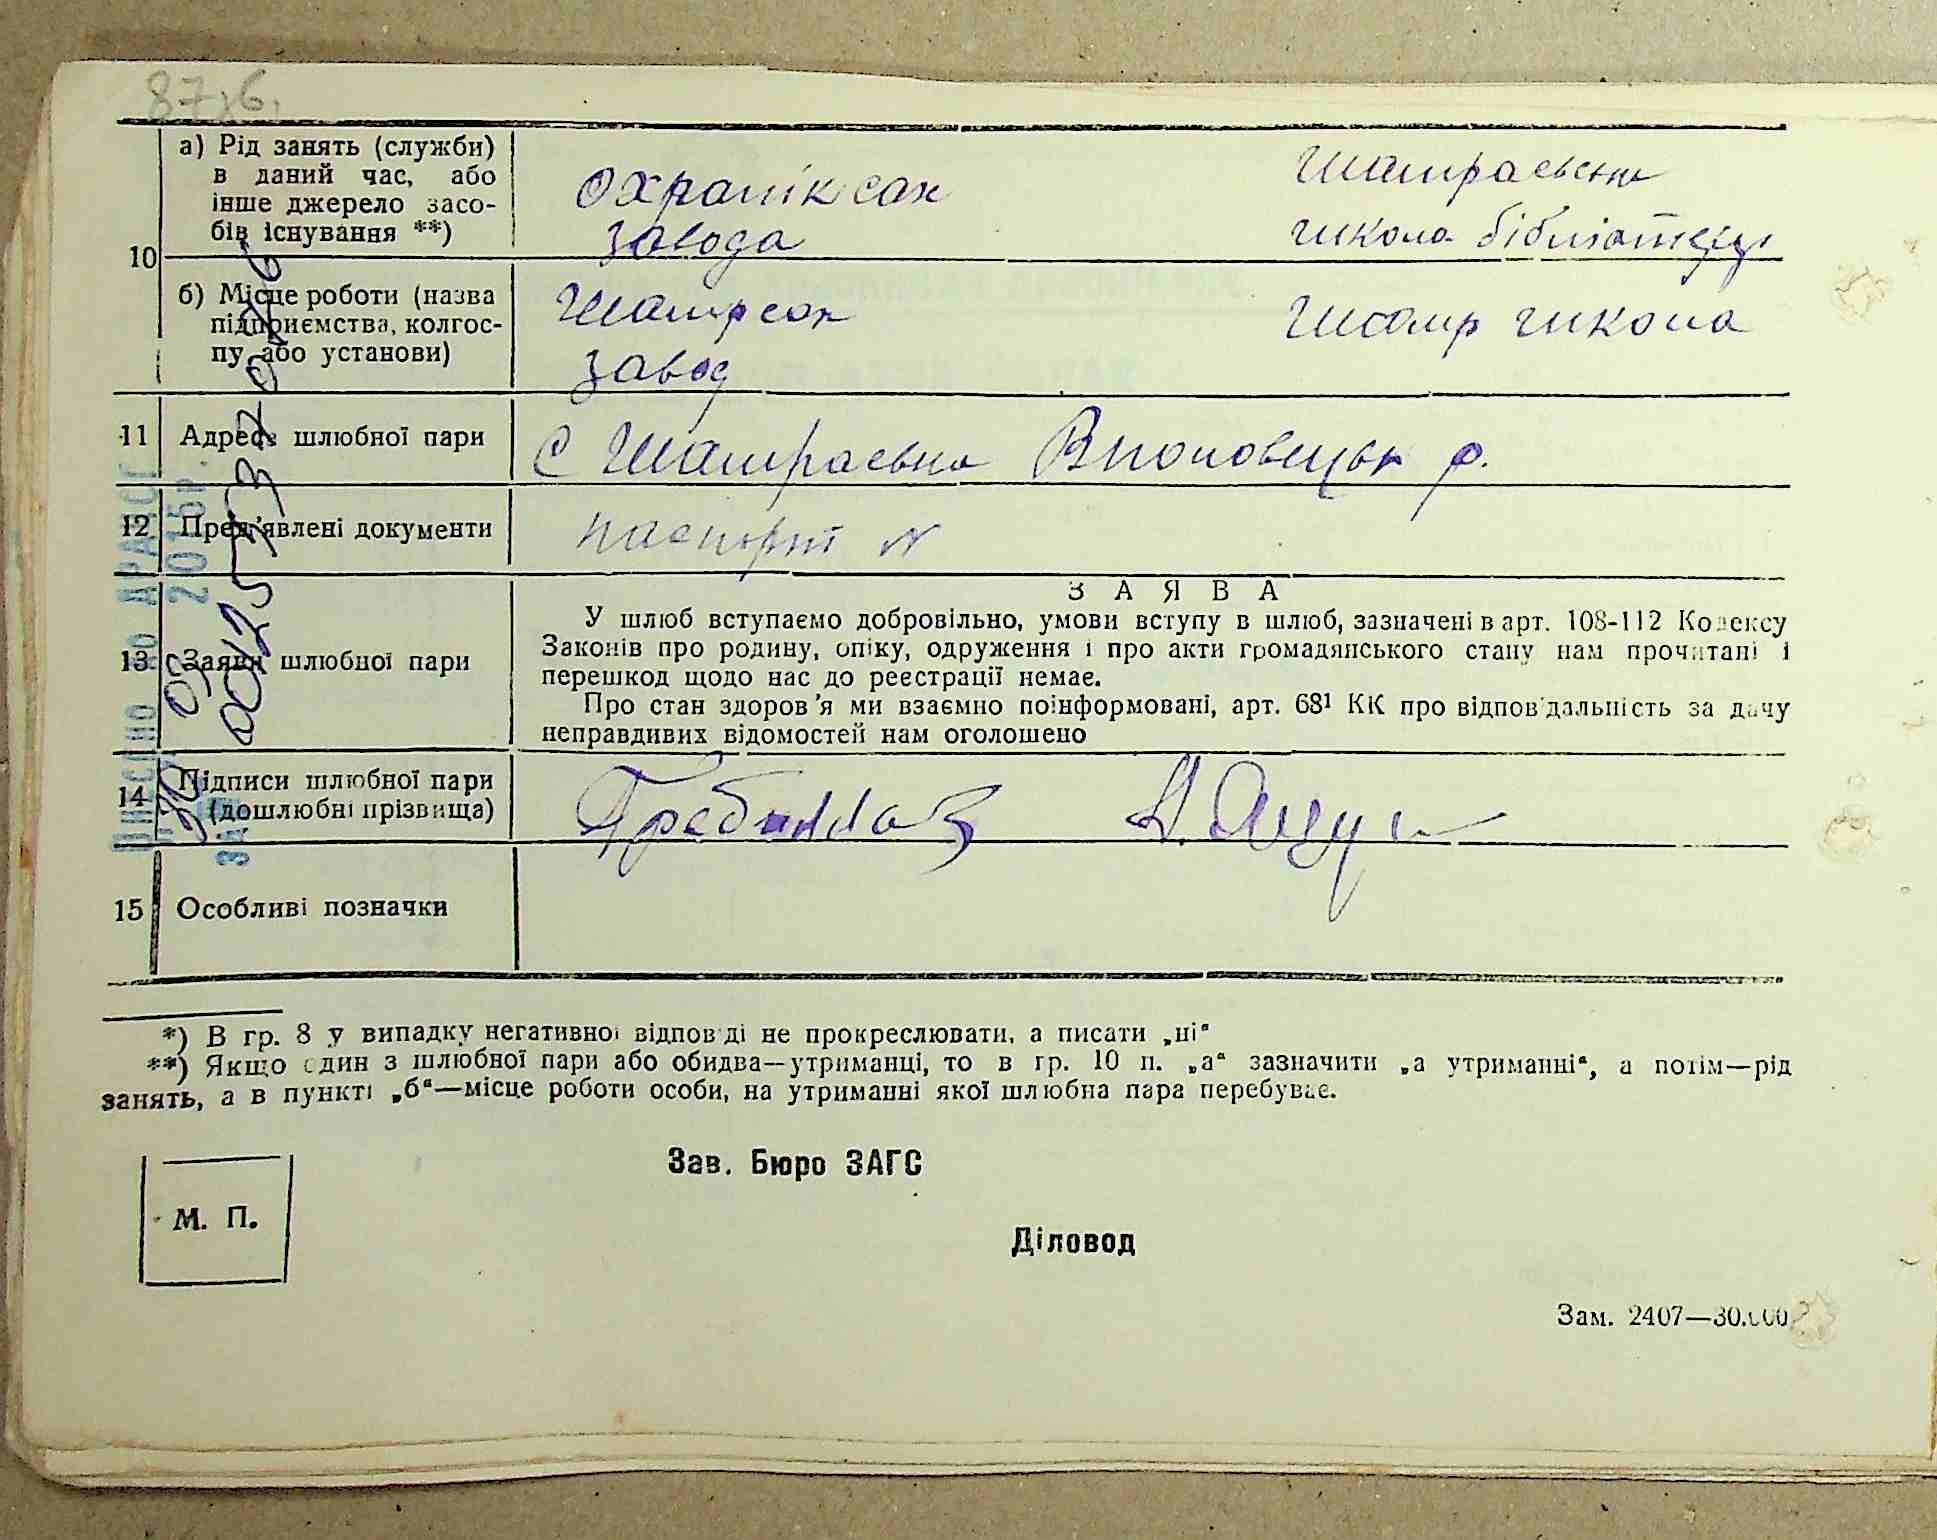 87
10
а) Рід занять (служби)
в даний час, або
інше джерело засо-
бів існування **)
завода
школа
б) Місце роботи (назва
підприємства, колгос-
пу або установи)
завод
школа
11 Адреса шлюбної пари
с
р.
12 Пред'явлені документи
паспорт №
13 Заяви шлюбної пари
ЗАЯВА
У шлюб вступаємо добровільно, умови вступу в шлюб, зазначені в арт. 108-112 Кодексу
Законів про родину, опіку, одруження і про акти громадянського стану нам прочитані і
перешкод щодо нас до реєстрації немає.
Про стан здоров'я ми взаємно поінформовані, арт. 68¹ КК про відповідальність за дачу
неправдивих відомостей нам оголошено
14 Підписи шлюбної пари
(дошлюбні прізвища)
15 Особливі позначки
*) В гр. 8 у випадку негативної відповіді не прокреслювати, а писати „ні“
**) Якщо один з шлюбної пари або обидва—утриманці, то в гр. 10 п. „а“ зазначити „а утриманні“, а потім—рід
занять, а в пункті „б“—місце роботи особи, на утриманні якої шлюбна пара перебуває.
Зав. Бюро ЗАГС
М. П.
Діловод
Зам. 2407—30.000
ДРАЦС
2015р.
30 03